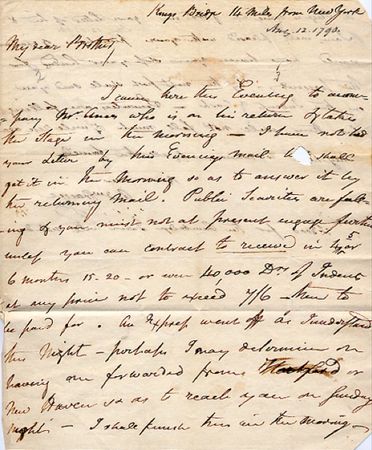 Kings Bridge 14 Miles from New York
Aug. 12. 1790.
My dear Brother,
I came here this Evening to accom-
pany Mr. Ames who is on his return & takes
the Stage in the morning — I have not had
your Letter by this Evenings mail & shall
get it in the Morning so as to answer it by
the returning mail. Public Securities are fal-
ling & you must not at present engage further
unless you can contract to receive in 4 or 5
6 months 15. 20 — or even 40,000 Drs of Indents
at any price not to exceed 7/6 — then to
be paid for. An Express went off as I understand
this Night — perhaps I may determine on
having one forwarded from Hartford or
New Haven so as to reach you on Sunday
night — I shall finish this in the Morning —